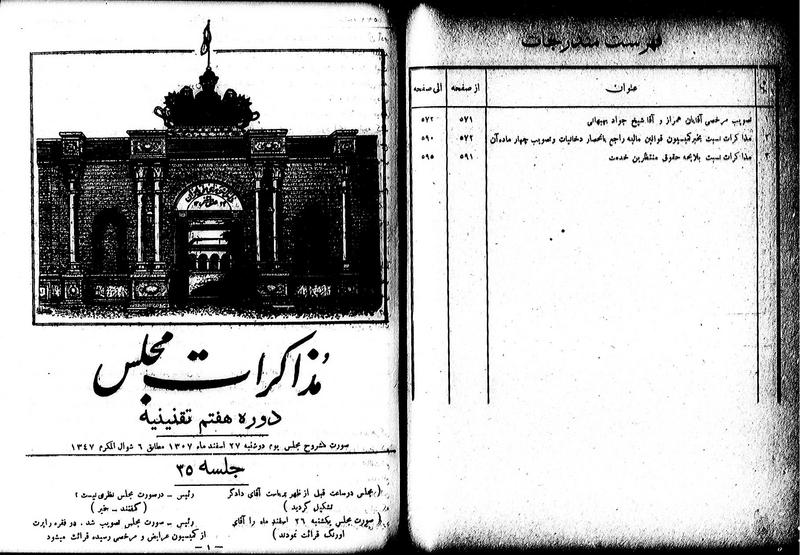 فهرست مندرجات
عنوان
از صفحه
الی صفحه
تصویب مرخصی آقایان همراز و آقا شیخ جواد بهبهانی
۵۷۱
۵۷۲
۲
مذاکرات نسبت بخبر کمیسیون قوانین مالیه راجع بانحصار دخانیات و تصویب چهار ماده آن
۵۷۲
۵۹۰
۳
مذاکرات نسبت بلایحه حقوق منتظرین خدمت
۵۹۱
۵۹۵
مذاکرات مجلس
دوره هفتم تقنینیه
صورت مشروح مجلس یوم دوشنبه ۲۷ اسفند ماه ۱۳۰۷ مطابق ۶ شوال المکرم ۱۳۴۷
جلسه ۳۵
( مجلس دو ساعت قبل از ظهر بریاست آقای دادگر
تشکیل گردید )
( صورت مجلس یکشنبه ۲۶ اسفند ماه را آقای
اورنگ قرائت نمودند )
رئیس ـ در صورت مجلس نظری نیست؟
( گفتند ـ خیر )
رئیس ـ صورت مجلس تصویب شد . دو فقره راپرت
از کمیسیون عرایض و مرخصی رسیده قرائت میشود
ـ ۱ ـ